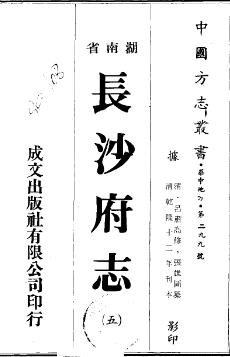 中國方志叢書・華中地方・第二九九號
據
清・呂肅高修・張雄圖纂
清乾隆十二年刊本
影印
湖南省
長沙府志
(五)
成文出版社有限公司印行